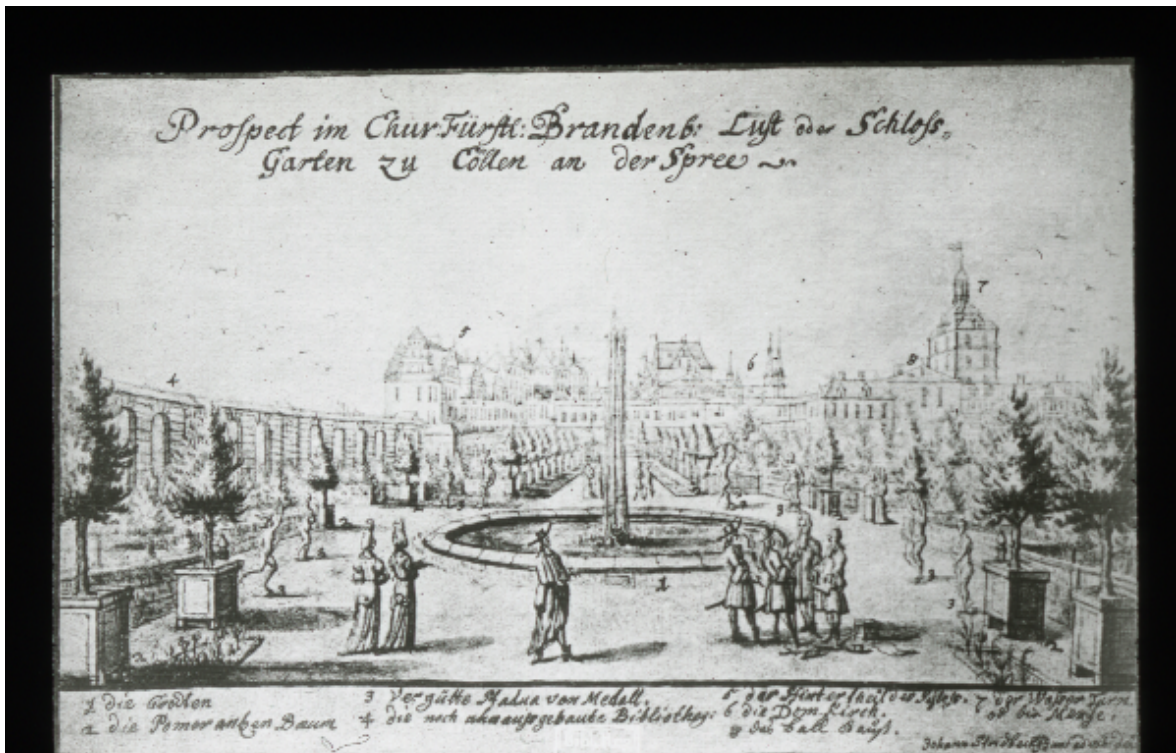 Prospect im ChurFürstl: Brandenb: Lust oder Schloss=
Garten zu Cöllen an der Spree
4
5
6
7
8
3
3
3
2
2
1
1 die Grotten
2 die Pomerantzen Baum
3 Vergülte Statua von Medall.
4 die noch unaussgebaute Bibliotheq:
5 der Hintertheil des
6 die Dom Kirch.
8 das Ball Hauss.
7 der Wasser Turm
od die Mentze.
Johann Stridbeck